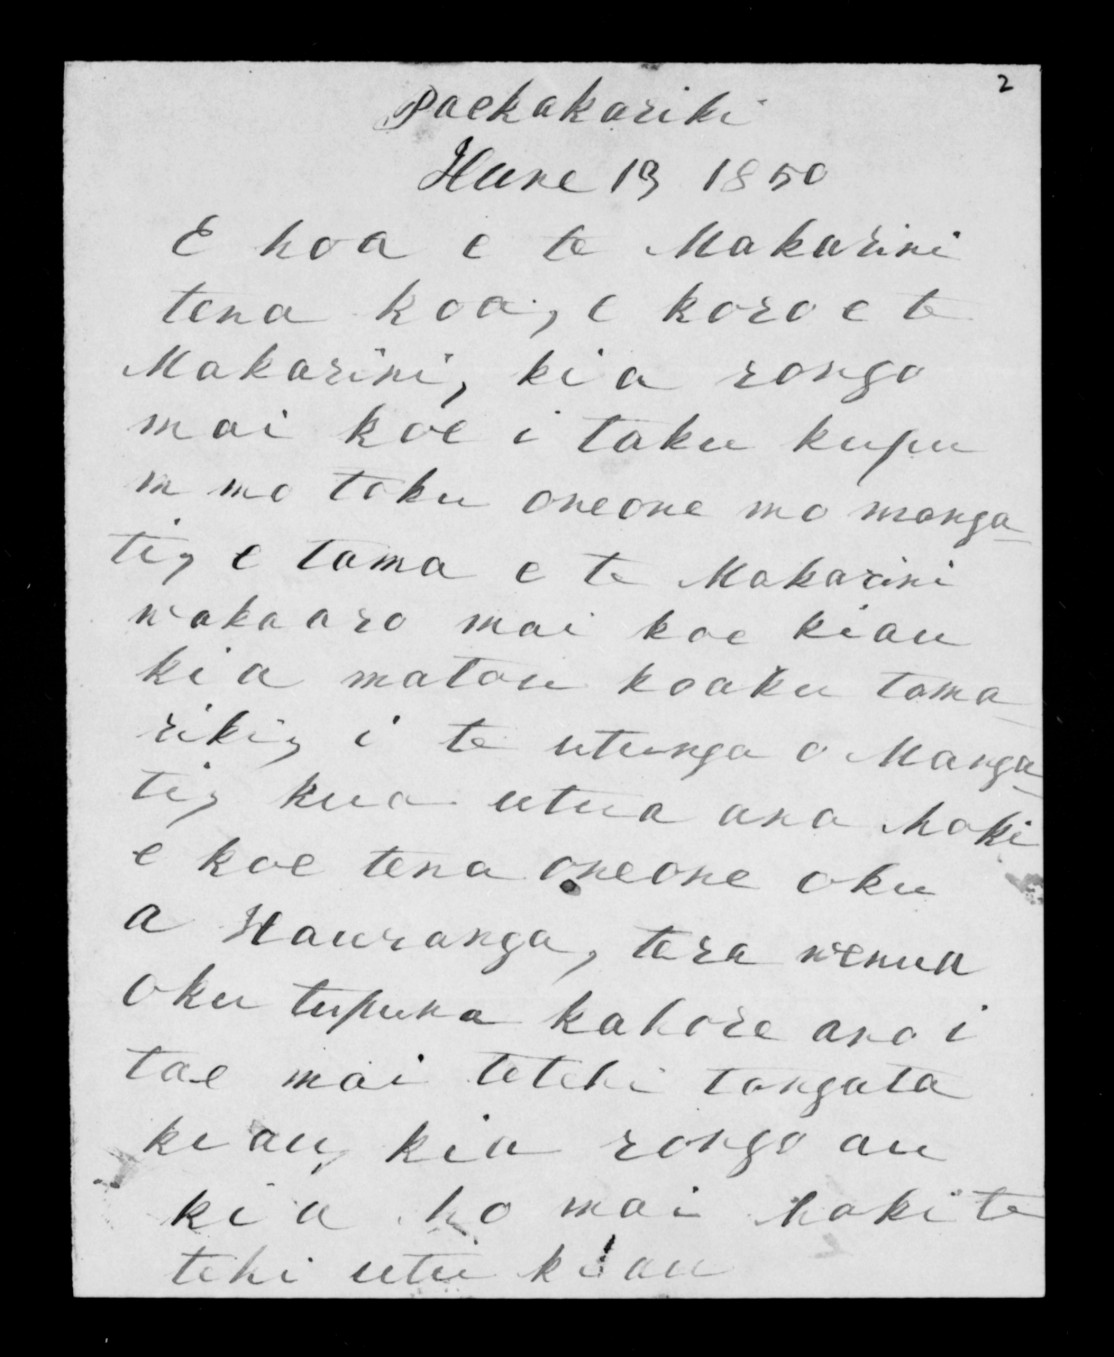 2
Paekakariki
Hune 13 1850
E hoa e te Makarini
tena koa, e koro e te
Makarini, kia rongo
mai koe i taku kupu
m mo toku oneone mo manga-
ti, e tama e te Makarini
wakaaro mai koe kiau
kia matou koaku tama-
riki, i te utunga o Manga-
ti, kua utua ana hoki
e koe tena oneone oku
a Hauranga, tera wenua
oku tupuna kahore ano i
tae mai tetehi tangata
ki au, kia rongo au
kia ho mai hoki te
tehi utu kiau